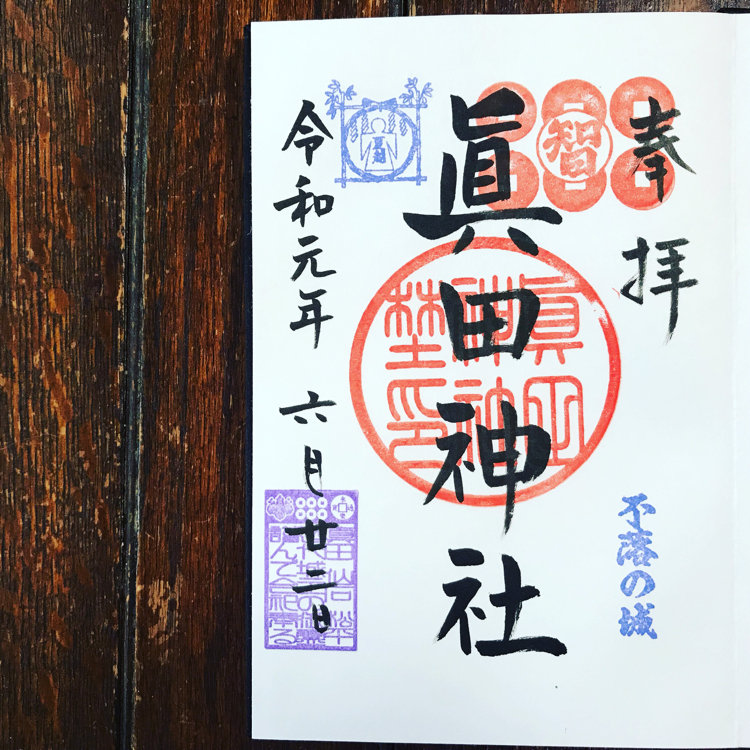 奉拝
智
不落の城
眞田神社
令和元年 六月廿二日